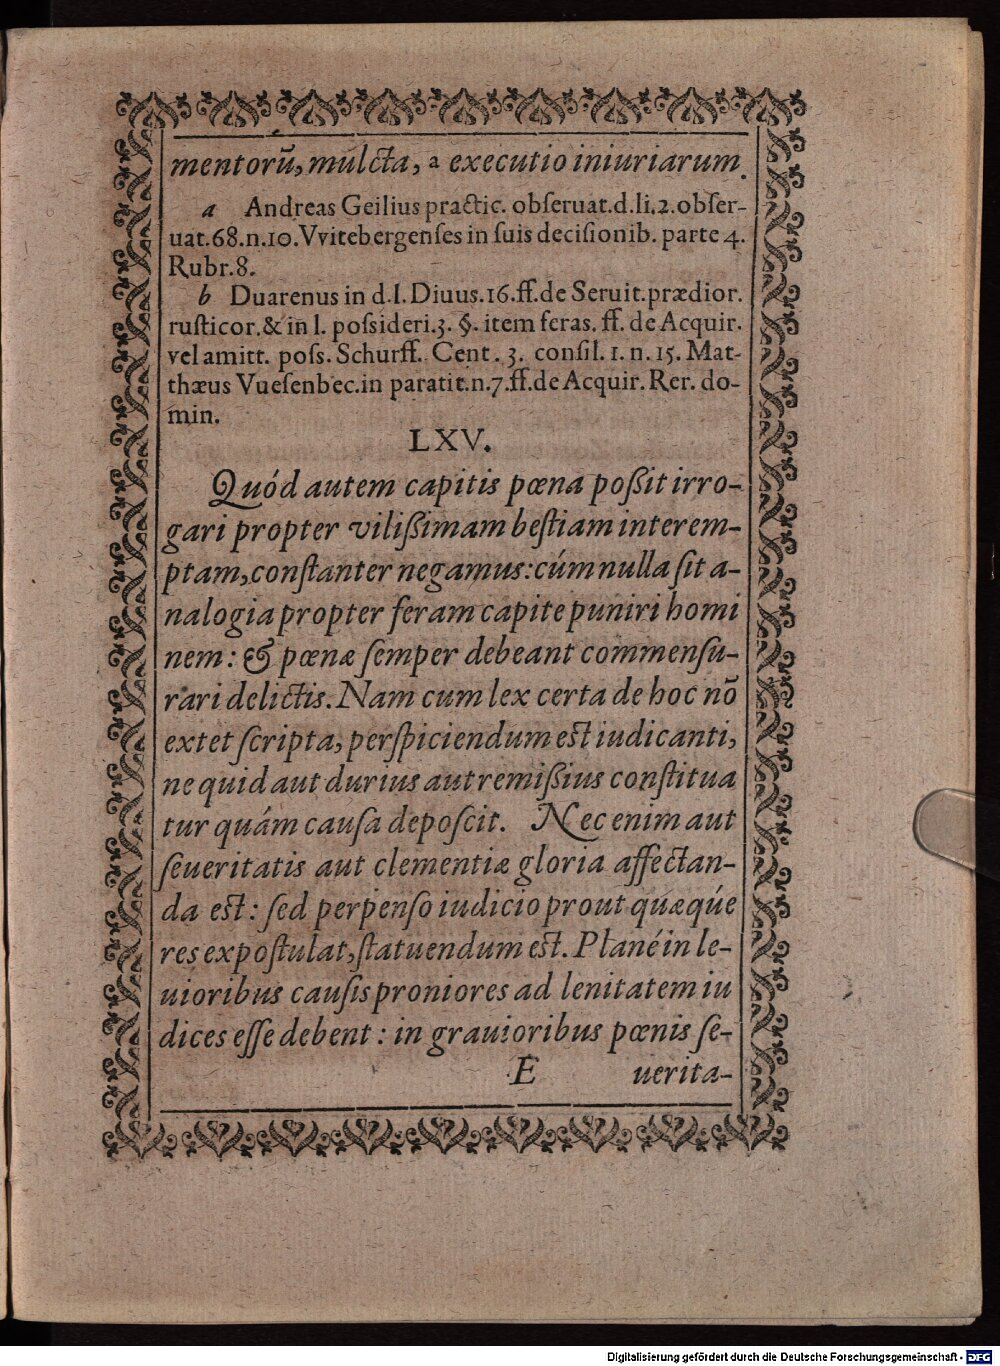 mentorū, mulcta, a executio iniuriarum.
a Andreas Geilius practic. obſeruat. d. li. 2. obſer-
uat. 68. n. 10. Vvitebergenſes in ſuis deciſionib. parte 4.
Rubr. 8.
b Duarenus in d. l. Diuus. 16. ff. de Seruit. prædior.
ruſticor. & in l. poſsideri. 3. §. item feras. ff. de Acquir.
vel amitt. poſs. Schurff. Cent. 3. conſil. 1. n. 15. Mat-
thæus Vueſenbec. in paratit. n. 7. ff. de Acquir. Rer. do-
min.
LXV.
Quód autem capitis pœna poßit irro-
gari propter vilißimam beſtiam interem-
ptam, conſtanter negamus: cúm nulla ſit a-
nalogia propter feram capite puniri homi
nem: & pœnæ ſemper debeant commenſu-
rari delictis. Nam cum lex certa de hoc nō
extet ſcripta, perſpiciendum est iudicanti,
ne quid aut durius aut remißius conſtitua
tur quám cauſa depoſcit. Nec enim aut
ſeueritatis aut clementiæ gloria affectan-
da est: ſed perpenſo iudicio prout quæqúe
res expoſtulat, ſtatuendum est. Plané in le-
uioribus cauſis proniores ad lenitatem iu
dices eſſe debent: in grauioribus pœnis ſe-
E uerita-
Digitalisierung gefördert durch die Deutsche Forschungsgemeinschaft - DFG